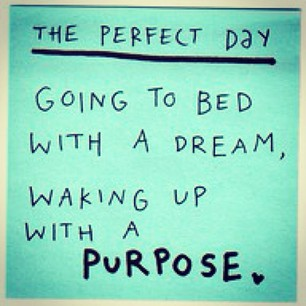 THE PERFECT DAY
GOING TO BED
WITH A DREAM,
WAKING UP
WITH A
PURPOSE.